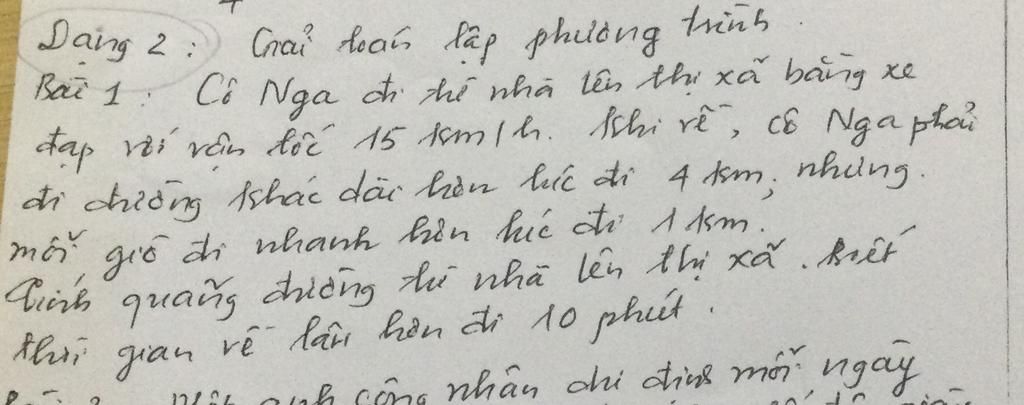 Dạng 2: Giải toán lập phương trình.
Bài 1: Cô Nga đi từ nhà lên thị xã bằng xe
đạp với vận tốc 15 km/h. Khi về, cô Nga phải
đi đường khác dài hơn lúc đi 4 km, nhưng.
mỗi giờ đi nhanh hơn lúc đi 1 km.
Tính quãng đường từ nhà lên thị xã. Biết
thời gian về lâu hơn đi 10 phút.
công nhân dự định mỗi ngày